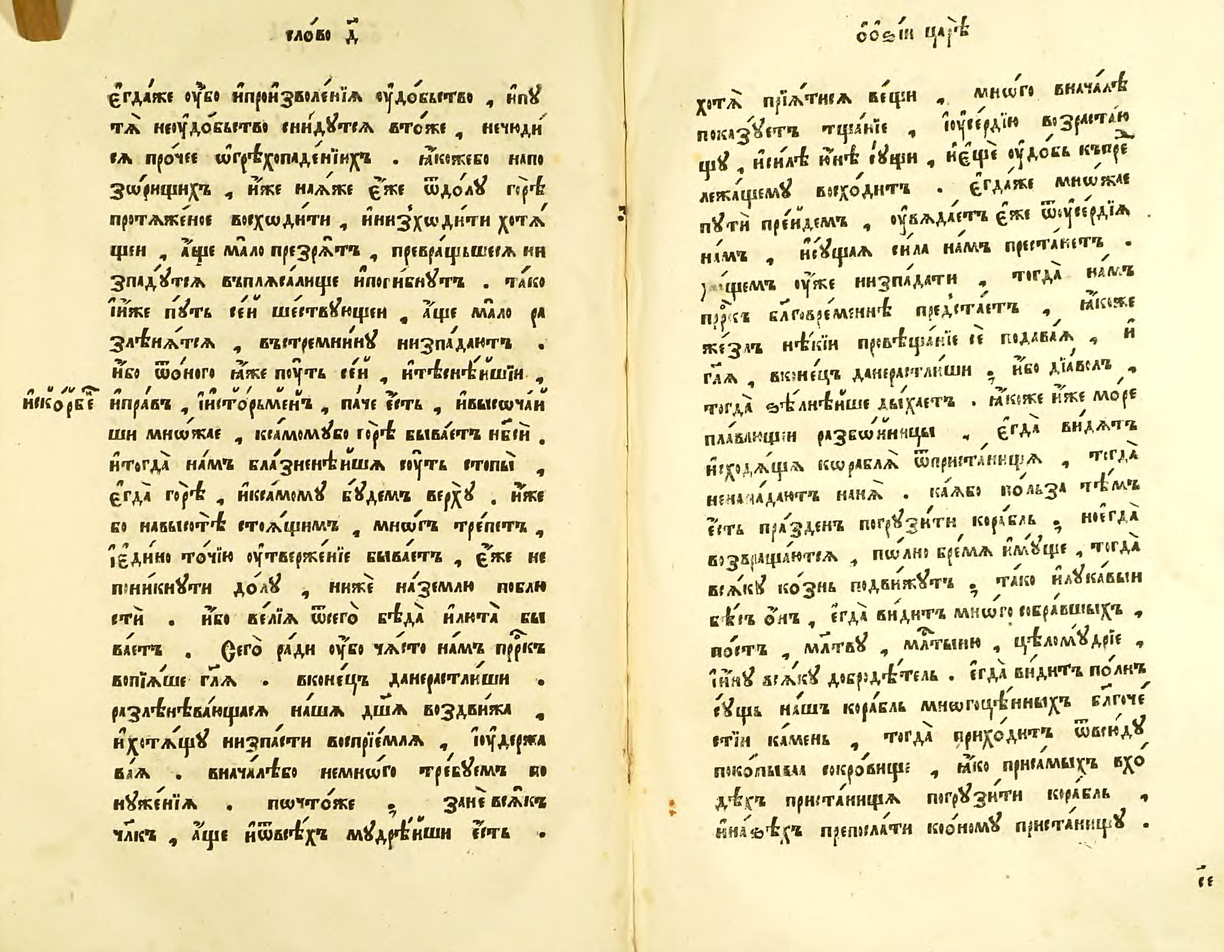 сло́во д҃
є҆гда́же ᲂу҆́бо и҆произволе́нїѧ ᲂу҆до́бьство , и҆пꙋ
тѧ̀ неᲂу҆до́бьство сни́дꙋтсѧ вто́же , нечюди́
сѧ про́чее ѡ҆грѣ́хопаде́нїихъ . ꙗ҆́кожебо напо
зѡ́рищихъ , и҆́же наѧ́же є҆́же ѿдо́лꙋ го́рѣ
протѧже́ное восхѡди́ти , и҆низхѡди́ти хотѧ́
щеи , а҆́ще ма́ло презрѧ́тъ , превра́щьшесѧ ни
зпадꙋ́тсѧ въплѧса́лище и҆поги́бнꙋтъ . та́ко
і҆и҆́же пꙋ́ть се́й ше́ствꙋющеи , а҆́ще ма́ло ра
злѣнѧ́тсѧ , въстремни́нꙋ низпа́даютъ .
и҆́бо ѿо́ного ꙗ҆́же пᲂу́ть се́й , и҆тѣснѣ́йшїи ,
и҆ско́рбе
и҆пра́въ , і҆исто́рьменъ , па́че є҆́сть , и҆высоча́й
ши мно́жае , ксамомꙋ́бо го́рѣ быва́етъ нб҃сй .
и҆тогда̀ на́мъ бла́зненѣ́йшѧ сᲂу́ть стопы̀ ,
є҆гда̀ го́рѣ , и҆ксамомꙋ бꙋ́демъ верхꙋ̀ . и҆́же
бо навысотѣ̀ стоѧ́щимъ , мно́гъ тре́петъ ,
і҆є҆ди́но то́чїю ᲂу҆тверже́нїе быва́етъ , є҆́же не
пони́кнꙋти до́лꙋ , нижѐ на́землю поблю
стѝ . и҆́бо ве́лїѧ ѿсего̀ бѣ́да и҆лю́та бы
ва́етъ . Сего̀ ра́ди ᲂу҆́бо ча́сто на́мъ прⷪ҇ркъ
вопїѧ́ше гл҃ѧ . вконе́цъ данераста́иши .
разлѣнѣва́ющаѧсѧ на́шѧ дш҃ѧ воздви́жа ,
и҆хотѧ́щꙋ низпа́сти воспрїе́млѧ , і҆ᲂу҆держа
ва́ѧ . внача́лѣбо немно́го тре́бꙋемъ по
нꙋже́нїѧ . почто́же ; занѐ всѧ́къ
чл҃къ , а҆́ще и҆ѿвсѣ́хъ мꙋдрѣ́йши є҆́сть .
ѻ҆́ ѻ҆зі́и царѣ̀
хотѧ̀ прїѧ́тисѧ ве́щи , мно́го внача́лѣ
пока́зꙋетъ тща́нїе , і҆ᲂу҆се́рдїю возраста́ю
щꙋ , и҆си́лѣ и҆́нѣ сꙋ́щи , и҆є҆щѐ ᲂу҆до́бь къпре
лежа́щемꙋ восхо́дитъ . є҆гда́же мно́жае
пꙋтѝ пре́йдемъ , ᲂу҆вѧда́етъ є҆́же ѿᲂу҆се́рдїѧ
на́мъ , и҆сꙋ́щаѧ си́ла на́мъ преста́нетъ .
щемъ ᲂу҆́же низпа́дати , тогда̀ на́мъ
прⷪ҇ркъ бл҃говре́меннѣ предста́етъ , ꙗ҆́коже
же́злъ нѣ́кїи провѣща́нїе сѐ пода́ваѧ , и҆
гл҃ѧ , вконе́цъ данераста́иши ; и҆́бо дїа́волъ ,
тогда̀ ѕѣлнѣ́йше ды́хаетъ . ꙗ҆́коже и҆́же море
пла́вающеи разбо́йницы , є҆гда̀ ви́дѧтъ
и҆сходѧ́щѧ кораблѐ ѿприста́нища , тогда̀
ненапа́даютъ нанѧ̀ . ка́ѧбо по́льза тѣ́мъ
є҆́сть пра́зденъ погрꙋзи́ти кора́бль ; ноегда̀
возвраща́ютсѧ , по́лно бре́мѧ и҆мꙋ́ще , тогда̀
всѧ́кꙋ ко́знь подви́жꙋтъ ; та́ко и҆лꙋка́выи
бѣ́съ ѻ҆́нъ , є҆гда̀ ви́дитъ мно́го собра́вшыхъ ,
по́стъ , мл҃твꙋ , мл҃тыню , цѣломꙋ́дрїе ,
і҆и҆́нꙋ всѧ́кꙋ добродѣ́тель . є҆гда̀ ви́дитъ по́лнъ
сꙋ́щь на́шъ кора́бль многоцѣ́нныхъ бл҃гоче́
стїи ка́мень , тогда̀ прихо́дитъ ѿвсю́дꙋ
поко́пываѧ сокро́вище , ꙗ҆́ко приса́мыхъ вхо́
дѣхъ приста́нища погрꙋзи́ти кора́бль ,
и҆на́ѕѣхъ препосла́ти коо́номꙋ приста́нищꙋ .
се